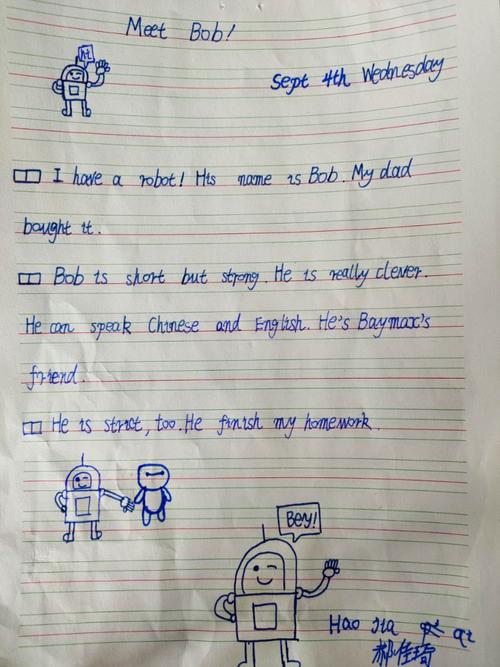 Meet Bob!
Hi
Sept 4th Wednesday
I have a robot! His name is Bob. My dad
bought it.
Bob is short but strong. He is really clever.
He can speak Chinese and English. He's Baymax's
friend.
He is strict, too. He finish my homework.
Bey!
Hao Jia qi
郝佳琦